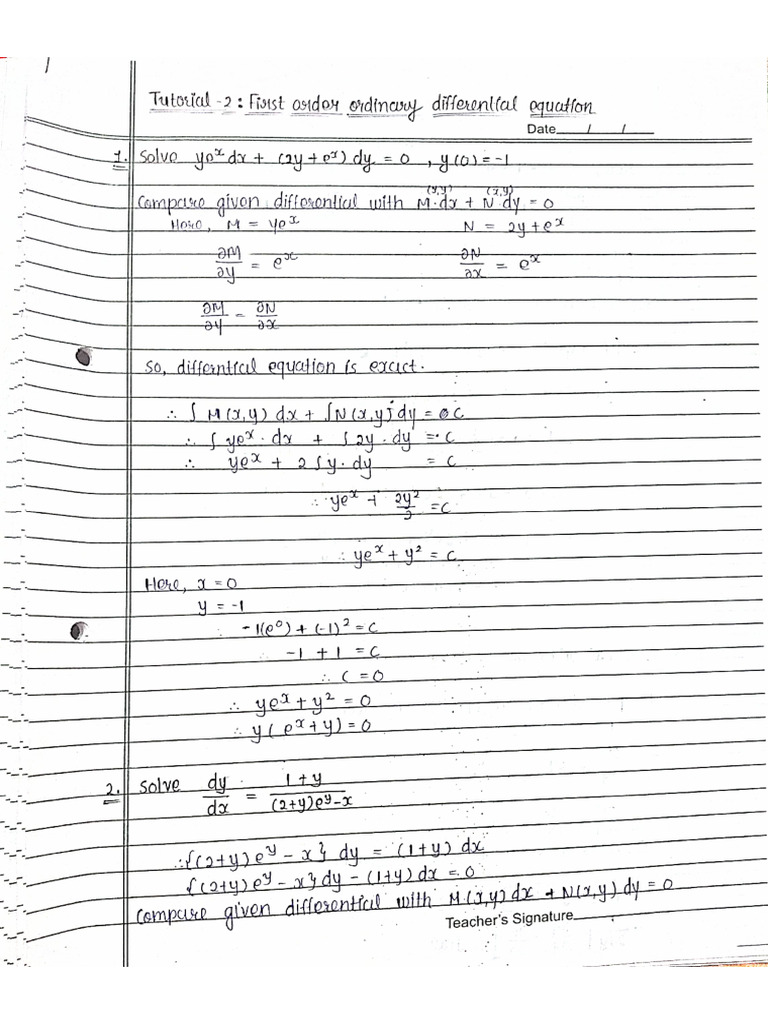 1
Tutorial-2: First order ordinary differential equation
Date / /
1. Solve ye^x dx + (2y + e^x) dy = 0, y(0) = -1
Compare given differential with M(x,y)·dx + N(x,y)dy = 0
Here, M = ye^x N = 2y + e^x
∂M/∂y = e^x ∂N/∂x = e^x
∂M/∂y = ∂N/∂x
So, differntical equation is exact.
∴ ∫ M(x,y) dx + ∫N(x,y) dy = C
∴ ∫ ye^x · dx + ∫ 2y · dy = C
∴ ye^x + 2 ∫ y · dy = C
∴ ye^x + 2y²/2 = C
∴ ye^x + y² = C
Here, x = 0
y = -1
∴ -1(e^0) + (-1)² = C
∴ -1 + 1 = C
∴ C = 0
∴ ye^x + y² = 0
∴ y(e^x + y) = 0
2. Solve dy/dx = 1+y/(2+y)e^y-x
∴ {(2+y)e^y - x} dy = (1+y) dx
{(2+y)e^y - x} dy - (1+y) dx = 0
Compare given differential with M(x,y) dx + N(x,y) dy = 0
Teacher's Signature